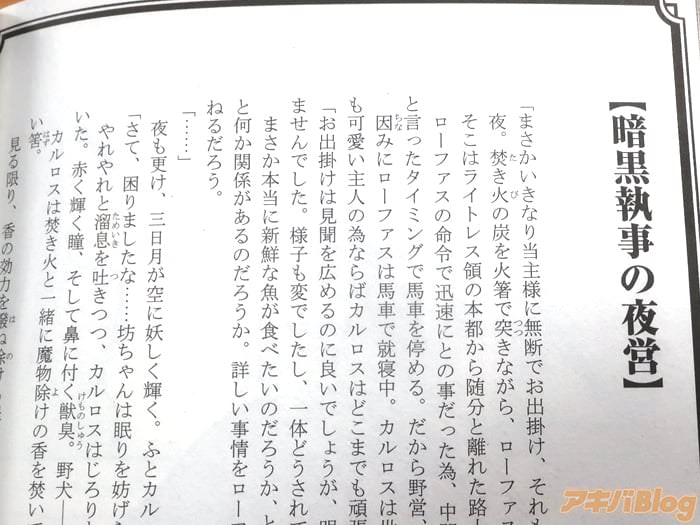 【暗黒執事の夜営】
「まさかいきなり当主様に無断でお出掛け、それも
夜。焚き火の炭を火箸で突きながら、ローファス
そこはライトレス領の本都から随分と離れた路上
ローファスの命令で迅速にとの事だった為、中
と言ったタイミングで馬車を停める。だから野営、
因みにローファスは馬車で就寝中。カルロスは
も可愛い主人の為ならばカルロスはどこまでも頑張
「お出掛けは見聞を広めるのに良いでしょうが、
ませんでした。様子も変でしたし、一体どうされて
まさか本当に新鮮な魚が食べたいのだろうか、と
と何か関係があるのだろうか。詳しい事情をロー
ねるだろう。
「……」
夜も更け、三日月が空に妖しく輝く。ふとカル
「さて、困りましたな……坊ちゃんは眠りを妨げ
やれやれと溜息を吐きつつ、カルロスはじろり
いた。赤く輝く瞳、そして鼻に付く獣臭。野犬―
カルロスは焚き火と一緒に魔物除けの香を焚いて
い筈。
見る限り、香の効力を撥ね除け
アキバBlog